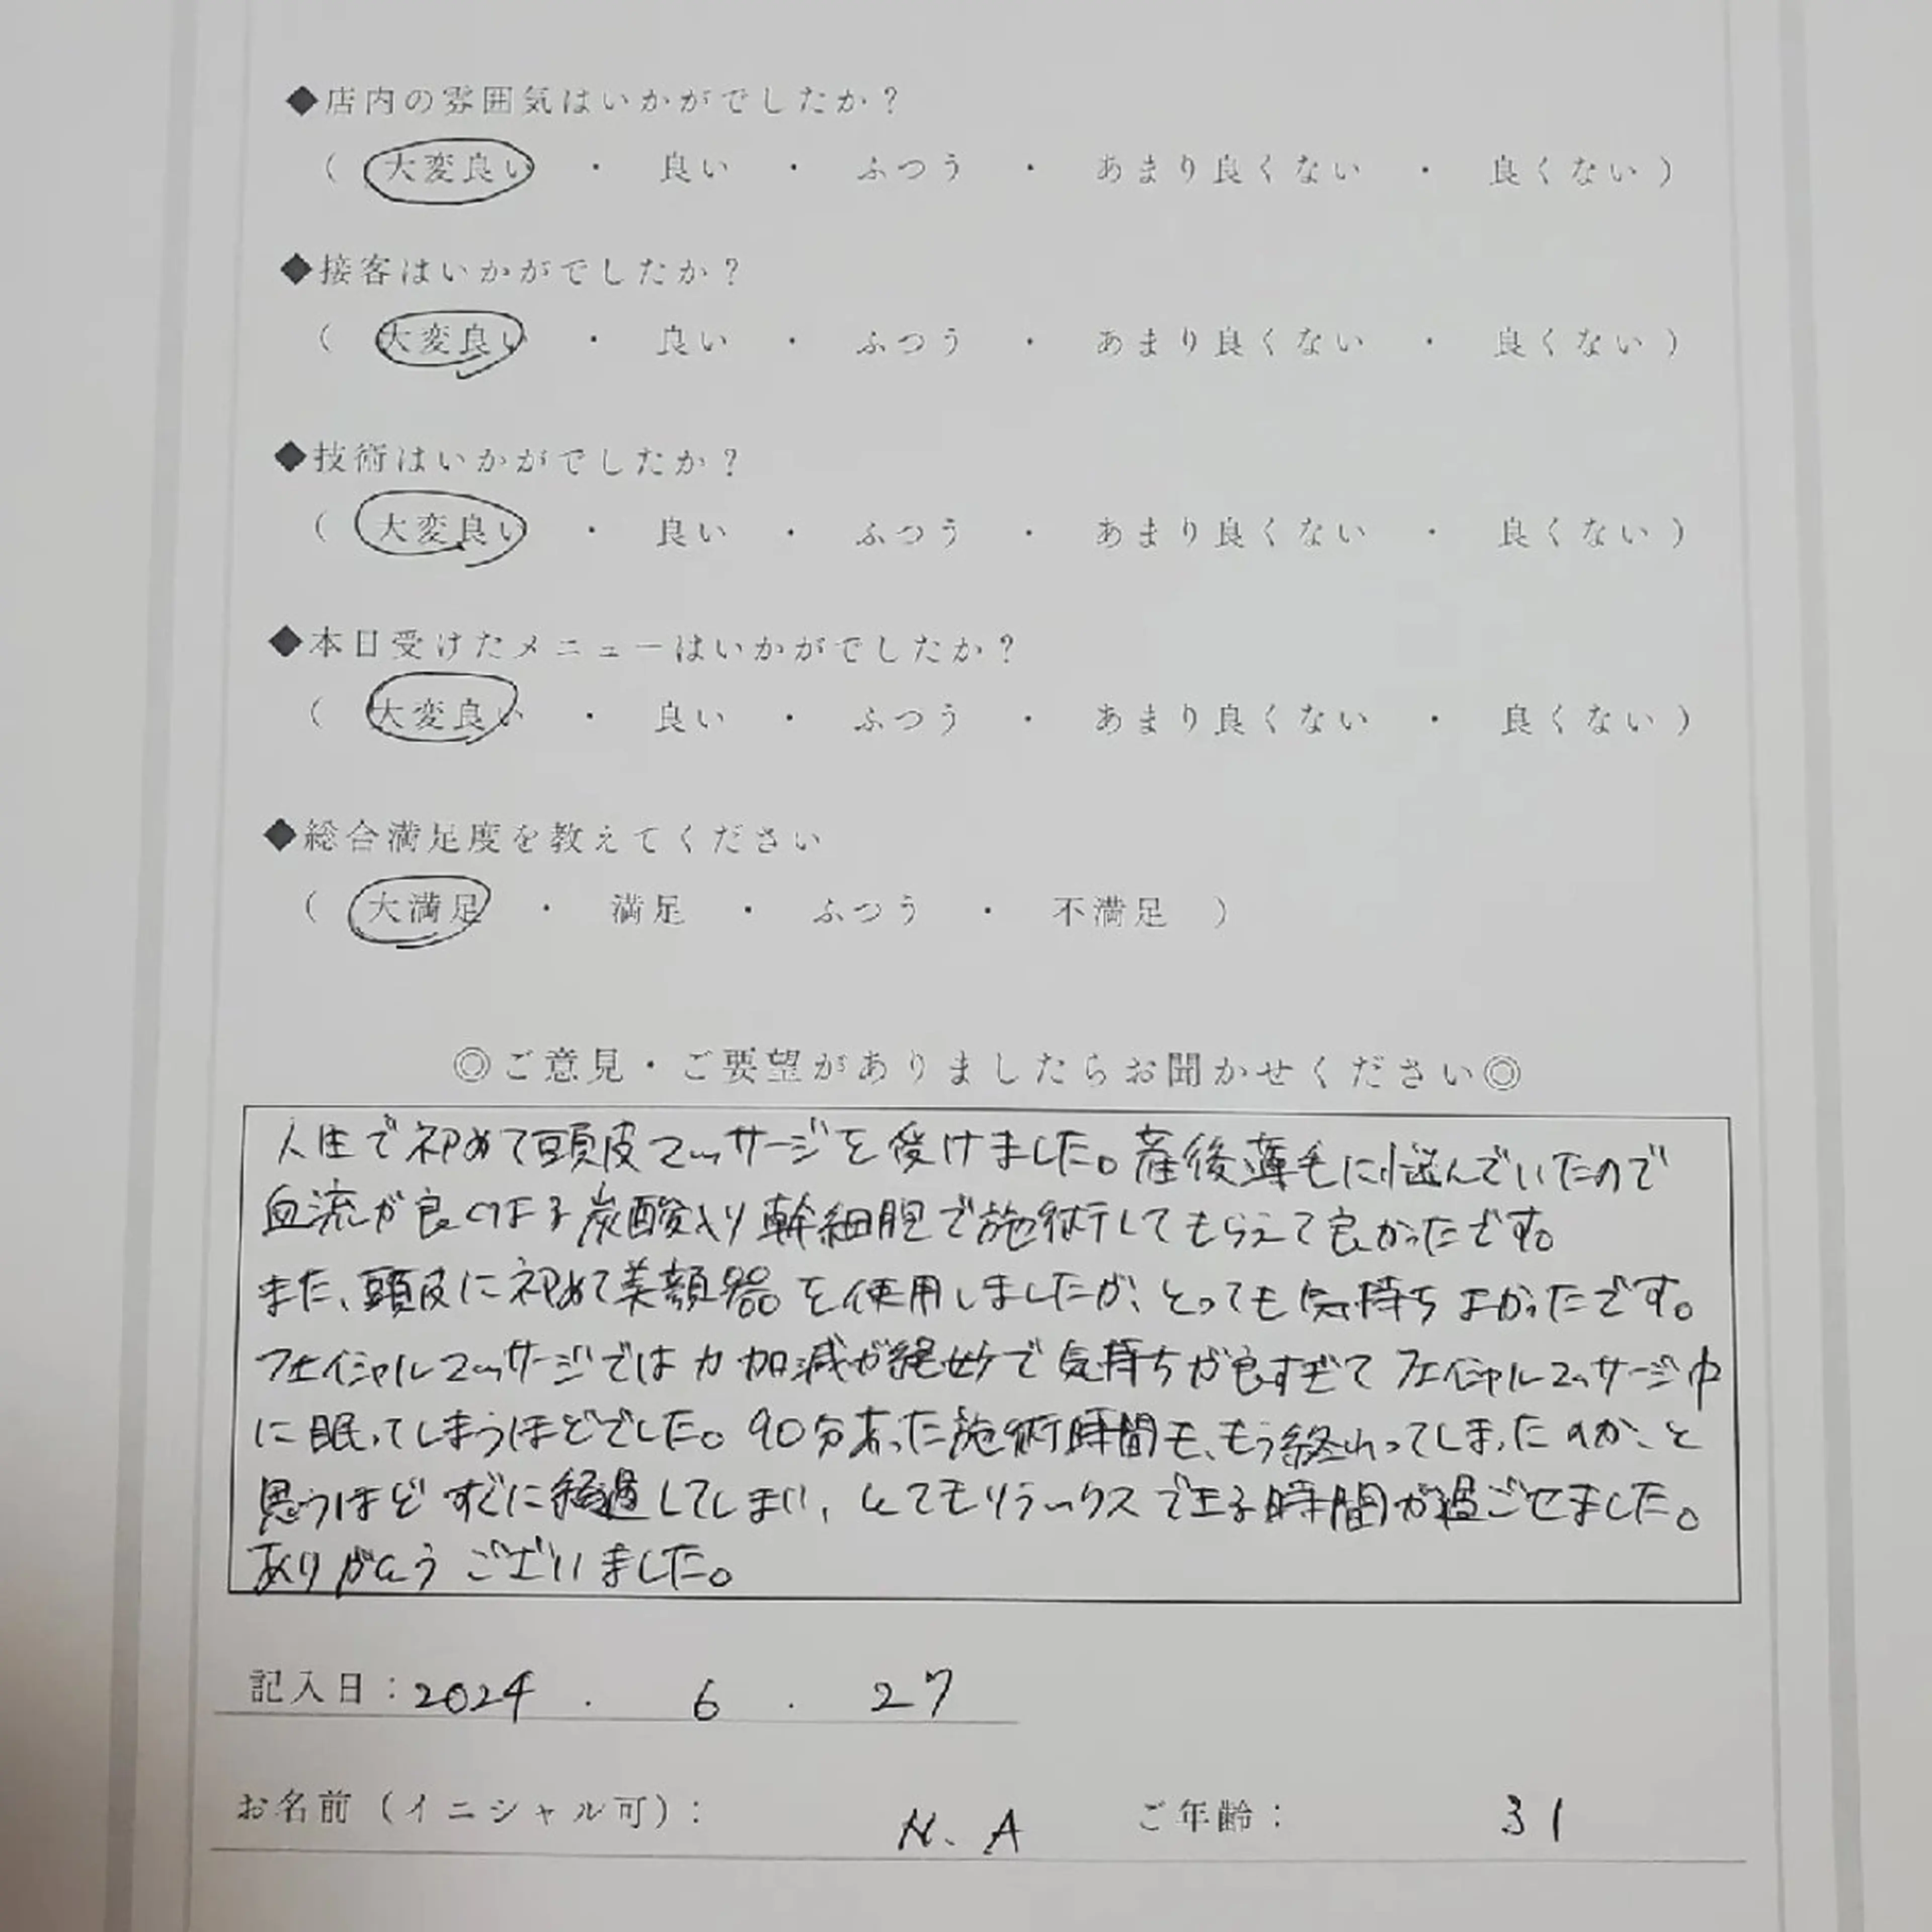 ◆店内の雰囲気はいかがでしたか?
( 大変良い ・ 良い ・ ふつう ・ あまり良くない ・ 良くない )
◆接客はいかがでしたか?
( 大変良い ・ 良い ・ ふつう ・ あまり良くない ・ 良くない )
◆技術はいかがでしたか?
( 大変良い ・ 良い ・ ふつう ・ あまり良くない ・ 良くない )
◆本日受けたメニューはいかがでしたか?
( 大変良い ・ 良い ・ ふつう ・ あまり良くない ・ 良くない )
◆総合満足度を教えてください
( 大満足 ・ 満足 ・ ふつう ・ 不満足 )
◎ご意見・ご要望がありましたらお聞かせください◎
人生で初めて頭皮マッサージを受けました。産後薄毛に悩んでいたので
血流が良くなる炭酸入り幹細胞で施術してもらえて良かったです。
また、頭皮に初めて美顔器を使用しましたが、とっても気持ちよかったです。
フェイシャルマッサージでは力加減が絶妙で気持ちが良すぎてフェイシャルマッサージ中
に眠ってしまうほどでした。90分あった施術時間も、もう終わってしまったのか、と
思うほどすぐに経過してしまい、とてもリラックスできる時間が過ごせました。
ありがとうございました。
記入日:2024 . 6 . 27
お名前(イニシャル可): N.A ご年齢: 31